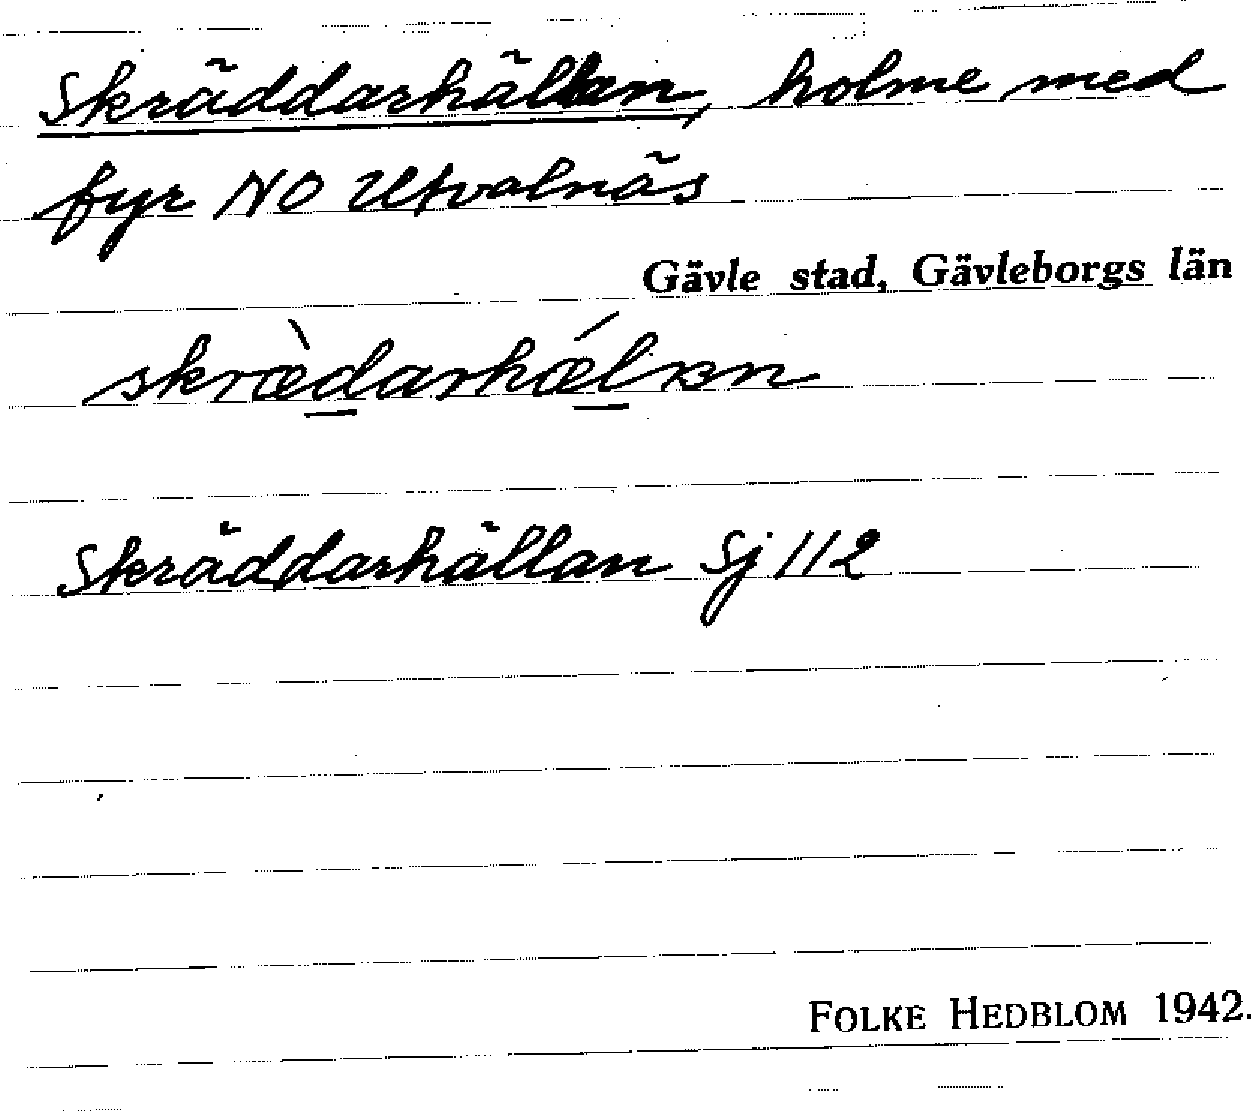 Skräddarhällan, holme med
fyr NO Utvalnäs
Gävle stad, Gävleborgs län
skræ̀darhǽlɐn
Skräddarhällan Sj 112
FOLKE HEDBLOM 1942.